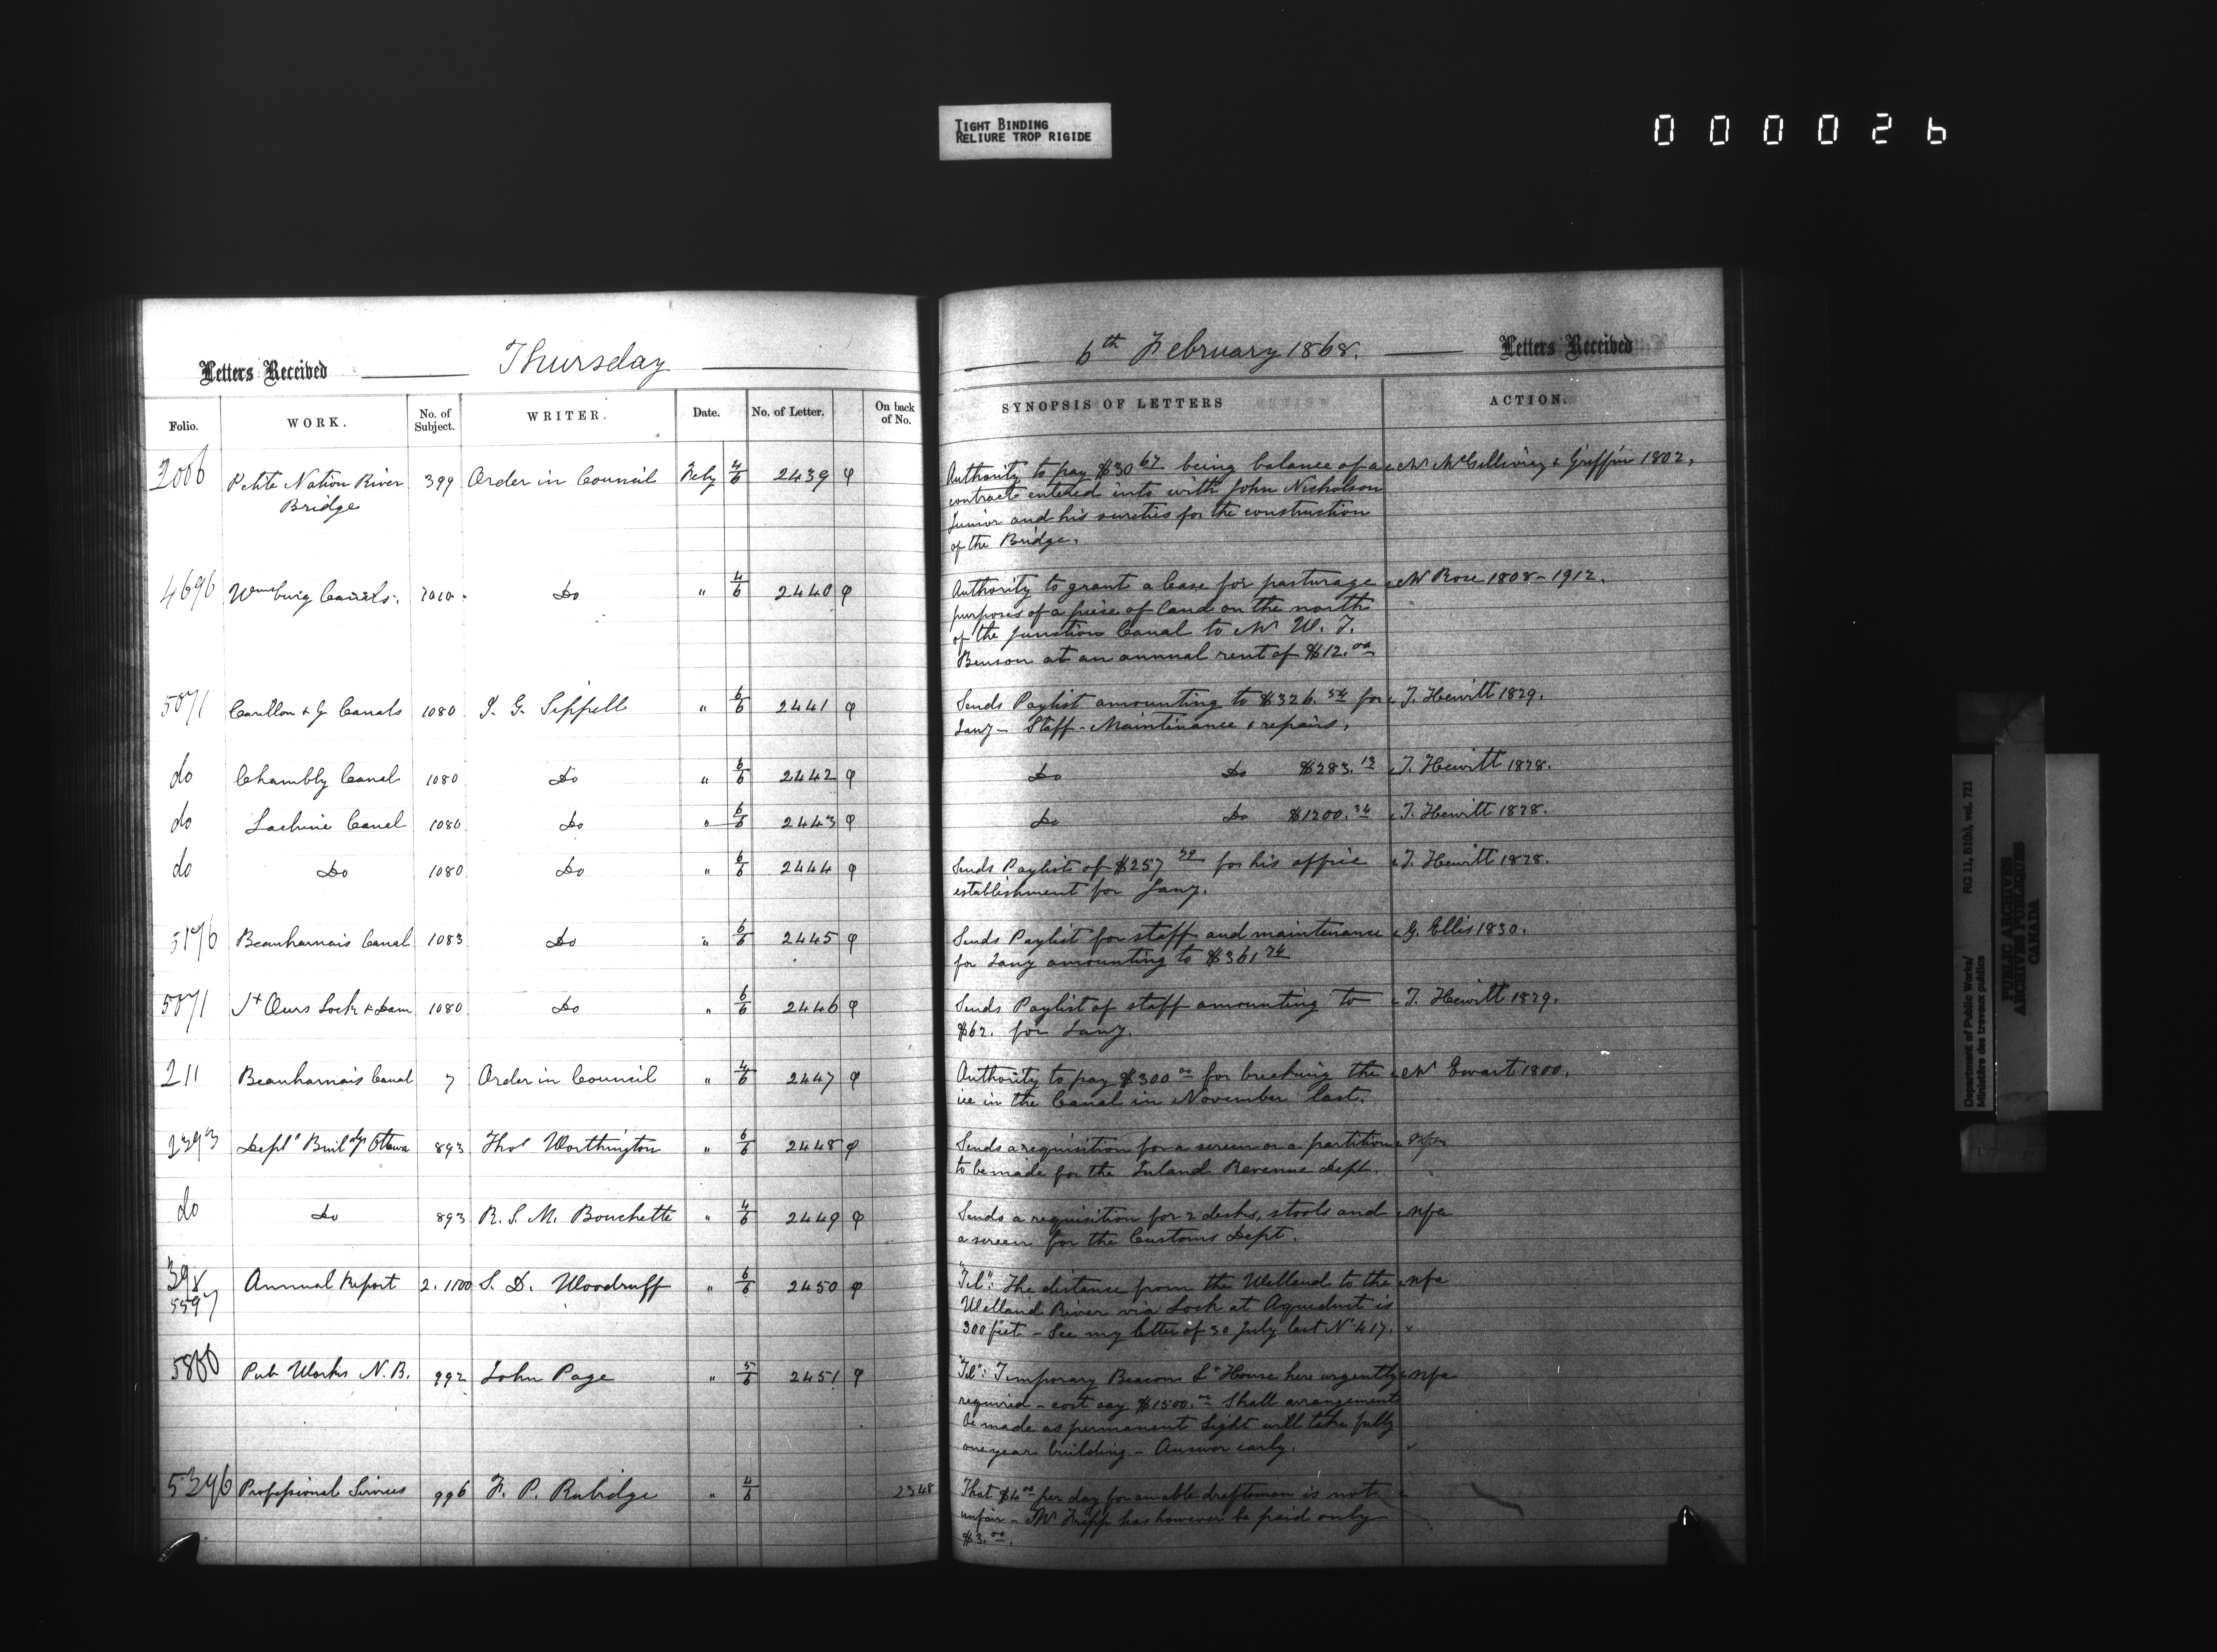 TIGHT BINDING
RELIURE TROP RIGIDE
000026
Letters Received Thursday
6th February 1868. Letters Received
Folio. WORK. No. of Subject. WRITER. Date. No. of Letter. On back of No.
SYNOPSIS OF LETTERS ACTION.
2006 Petite Nation River 399 Order in Council Feby 4/6 2439
Bridge
Authority to pay $30 67 being balance of a Mr McGillivray & Griffin 1802,
contract entered into with John Nicholson
Junior and his sureties for the construction
of the Bridge.
4696 Wmsburg Canals. Do " 4/6 2440
Authority to grant a lease for pasturage Mr Rose 1808-1912.
purposes of a piece of land on the north
of the Junction Canal to Mr W. J.
Benson at an annual rent of $12.00
5071 Carillon & G Canals 1080 J. G. Sippell " 6/6 2441
Sends Paylist amounting to $326.54 for T. Hewitt 1829.
Jany - Staff - Maintenance & repairs.
do Chambly Canal 1080 Do " 6/6 2442
Do Do $283. T. Hewitt 1828.
do Lachine Canal 1080 Do " 6/6 2443
Do Do $1200.34 T. Hewitt 1828.
do Do 1080 Do " 6/6 2444
Sends Paylist of $257 for his office T. Hewitt 1828.
establishment for Jany.
5176 Beauharnais Canal 1083 Do " 6/6 2445
Sends Paylist for staff and maintenance G. Ellis 1830.
for Jany amounting to $361
5071 St Ours Lock & Dam 1080 Do " 6/6 2446
Sends Paylist of staff amounting to T. Hewitt 1829.
$62. for Jany.
211 Beauharnais Canal 7 Order in Council " 4/6 2447
Authority to pay $300 00 for breaking the Mr Ewart 1800.
ice in the Canal in November last.
2393 Deptl Buildgs Ottawa 893 Thos Worthington " 6/6 2448
Sends a requisition for a screen or a partition nfa
to be made for the Inland Revenue Dept.
do Do 893 R. S. M. Bouchette " 4/6 2449
Sends a requisition for 2 desks, stools and nfa
a screen for the Customs Dept.
398 Annual Report 2. 1100 S. D. Woodruff " 6/6 2450
5597
"Tel": The distance from the Welland to the nfa
Welland River via Lock at Aqueduct is
300 feet - See my letter of 30 July last No 417.
5860 Pub Works N.B. 992 John Page " 5/6 2451
"Tel": Temporary Beacon Lt House here urgently nfa
required - cost say $1500.00 Shall arrangements
be made as permanent Light will take fully
one year building - Answer early.
5396 Professional Services 996 F. P. Rubidge " 4/6 2348
That $4 00 per day for an able draftsman is not
unfair - Mr Fripp has however be paid only
$3.00.
Department of Public Works/ RG 11, B1(b), vol. 721
Ministère des travaux publics
PUBLIC ARCHIVES
ARCHIVES PUBLIQUES
CANADA